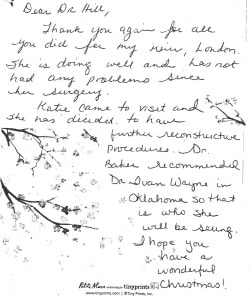 Dear Dr Hill,
Thank you again for all
you did for my niece, London.
She is doing well and has not
had any problems since
her surgery.
Katie came to visit and
she has decided to have
further reconstructive
procedures. Dr.
Baker recommended
Dr. Ivan Wayne in
Oklahoma so that
is who she
will be seeing.
I hope you
have a
wonderful
Christmas!
tinyprints
www.tinyprints.com | ©Tiny Prints, Inc.